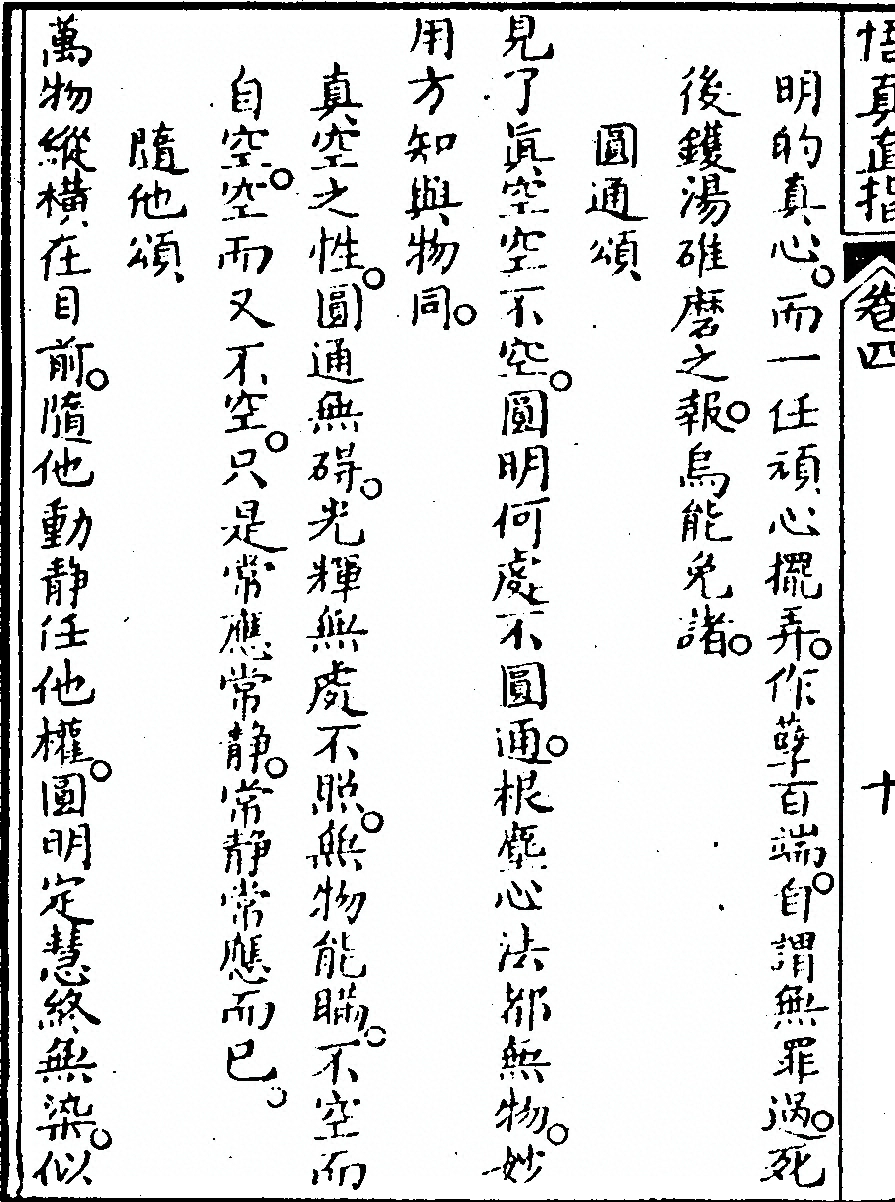 悟真直指 卷四 十
明的真心。而一任頑心擺弄。作孽百端。自謂無罪過。死
後鑊湯碓磨之報。烏能免諸。
圓通頌
見了眞空空不空。圓明何處不圓通。根塵心法都無物。妙
用方知與物同。
真空之性。圓通無碍。光輝無處不照。無物能瞞。不空而
自空。空而又不空。只是常應常靜。常靜常應而已。
隨他頌
萬物縱橫在目前。隨他動静任他權。圓明定慧終無染。似